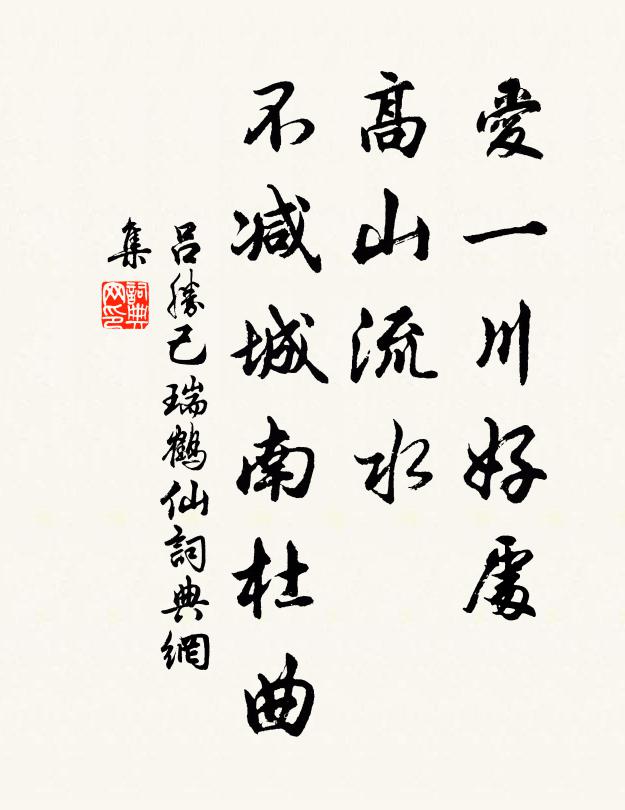 愛一川好處
高山流水
不減城南杜曲
呂勝己瑞鶴仙詞典網
集
詞典
网印